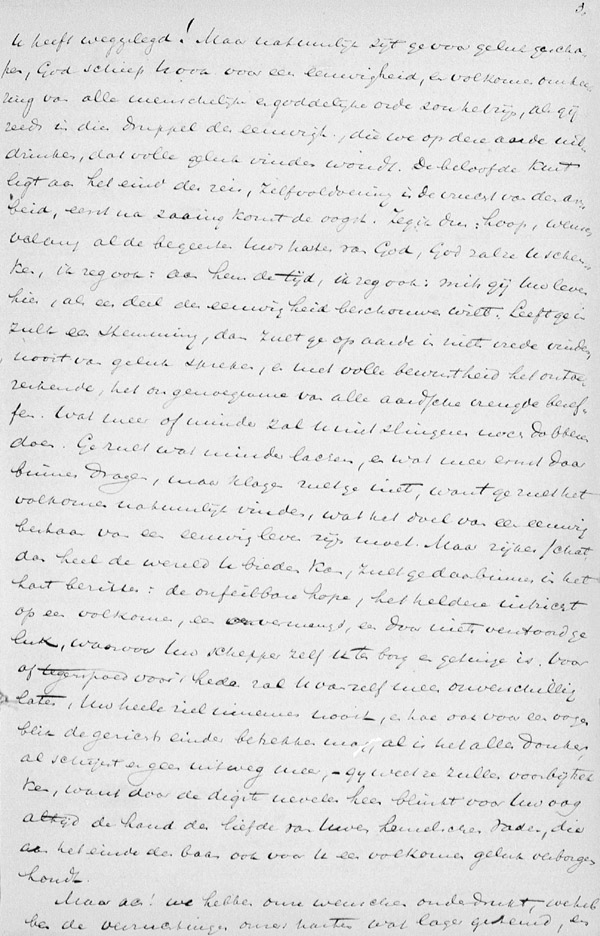 3.
U heeft weggelegd! Maar natuurlijk zijt ge voor geluk gescha-
pen, God schiep U ook voor een eeuwigheid, en volkomen omkee-
ring van alle menschelijke en goddelijke orde zou het zijn, als gij
reeds in dien druppel der eeuwigh., die we op deze aarde uit-
drinken, dat volle geluk vinden wondt. De beloofde kust
ligt aan het eind der reis, zelfvoldoening is de vrucht van den ar-
beid, eerst na zaaiing komt de oogst. Zeg ik dus: hoop, wensch
verlang al de begeerten Uws harten van God, God zal ze U schen-
ken, ik zeg ook: aan hem de tijd, ik zeg ook: mits gij Uw leven
hier, als een deel der eeuwigheid beschouwen wilt. Leeft ge in
zulk een stemming, dan zult ge op aarde in niets vrede vinden,
nooit van geluk spreken, en met volle bewustheid het ontoe-
reikende, het ongenoegzame van alle aardsche vreugde besef-
fen. Wat meer of minder zal U niet slingeren noch dobberen
doen. Ge zult wat minder lachen, en wat meer ernst daar
binnen dragen, maar klagen zult ge niet, want ge zult het
volkomen natuurlijk vinden, wat het doel van een eeuwig
bestaan van een eeuwig leven zijn moet. Maar rijker schat
dan heel de wereld U bieden kan, zult ge daarbinnen in het
hart bezitten: de onfeilbare hope, het heldere uitzicht
op een volkomen, een onvermengd, een door niets verstoord ge
luk, waarvoor Uw schepper zelf U ten borg en getuige is. Voor
of tegenspoed voor 't heden zal U van zelf meer onverschillig
laten, Uw heele ziel innemen nooit, en hoe ook voor een oogen
blik de gezichteinder betrekken mag, al is het alles donker,
al schijnt er geen uitweg meer, - gij weet ze zullen voorbijtrek
ken, want door de digte nevelen heen blinkt voor Uw oog
altijd de hand der liefde van Uwen hemelschen Vader, die
aan het einde der baan ook voor U een volkomen geluk verborgen
houdt.
Maar ach! we hebben onze wenschen onderdrukt, we heb
ben de verwachtingen onzes harten wat lager gestemd, en